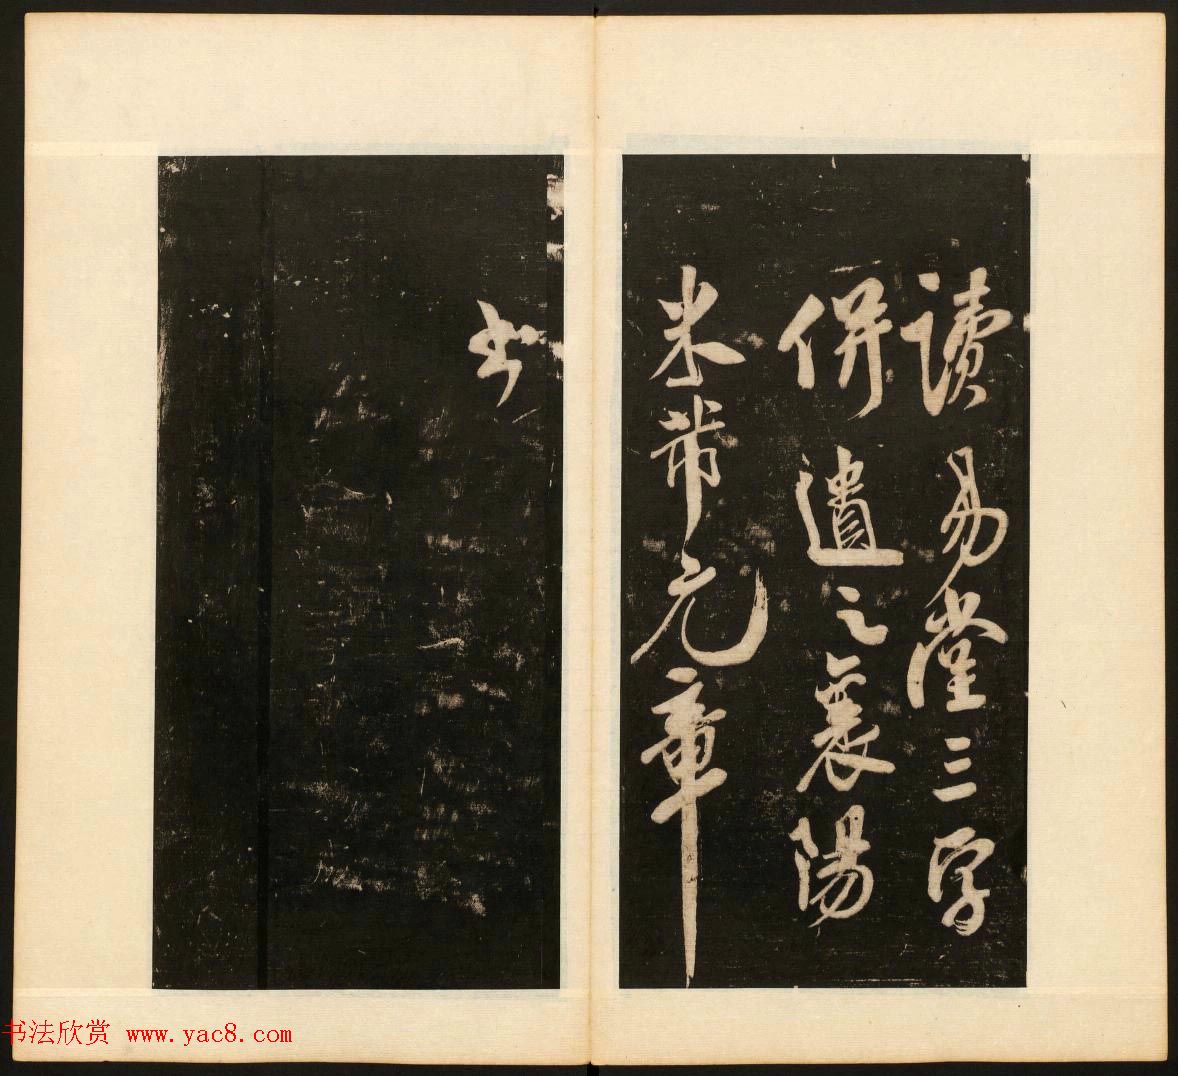 讀易堂三字
併遺之襄陽
米芾元章
书
书法欣赏 www.yac8.com